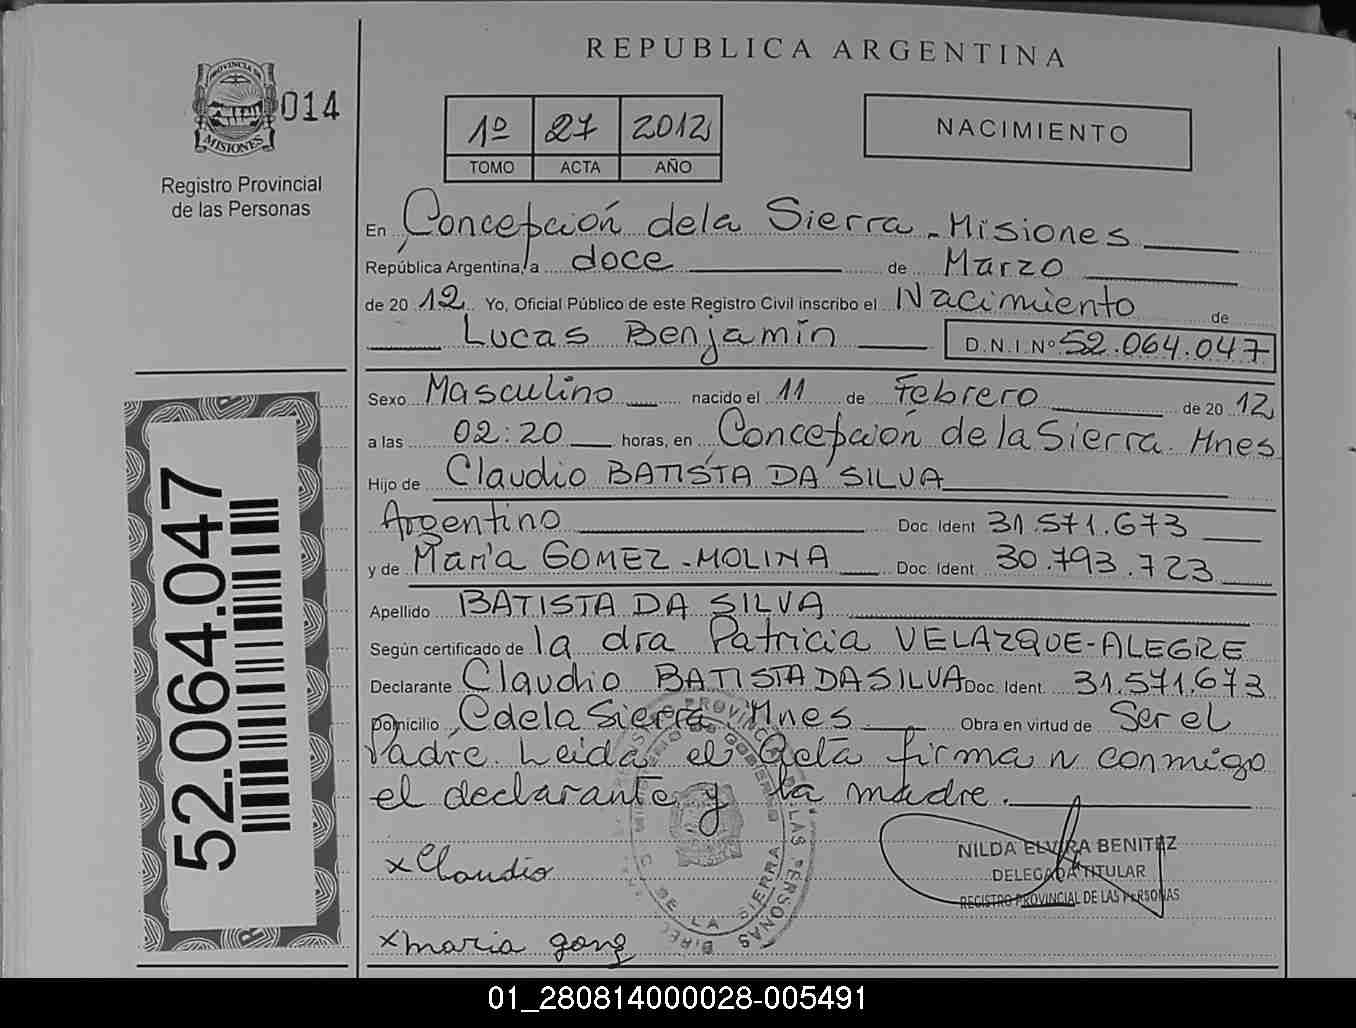 REPUBLICA ARGENTINA
PROVINCIA DE
MISIONES
014
Registro Provincial
de las Personas
1º 27 2012
TOMO ACTA AÑO
NACIMIENTO
En Concepción dela Sierra - Misiones
República Argentina, a doce de Marzo
de 2012 Yo, Oficial Público de este Registro Civil inscribo el Nacimiento de
Lucas Benjamín D.N.I.Nº 52.064.047
Sexo Masculino nacido el 11 de Febrero de 2012
a las 02:20 horas, en Concepción de la Sierra. Mnes
Hijo de Claudio BATISTA DA SILVA
Argentino Doc. Ident 31.571.673
y de María GOMEZ-MOLINA Doc. Ident. 30.793.723
Apellido BATISTA DA SILVA
Según certificado de la dra Patricia VELAZQUE-ALEGRE
Declarante Claudio BATISTA DA SILVA Doc. Ident. 31.571.673
Domicilio C dela Sierra Mnes Obra en virtud de Ser el
Padre. Leida el Acta firman conmigo
el declarante y la madre.
52.064.047
x Claudio
NILDA ELVIRA BENITEZ
DELEGADA TITULAR
REGISTRO PROVINCIAL DE LAS PERSONAS
C. DE LA SIERRA
x maria gomz
01_280814000028-005491